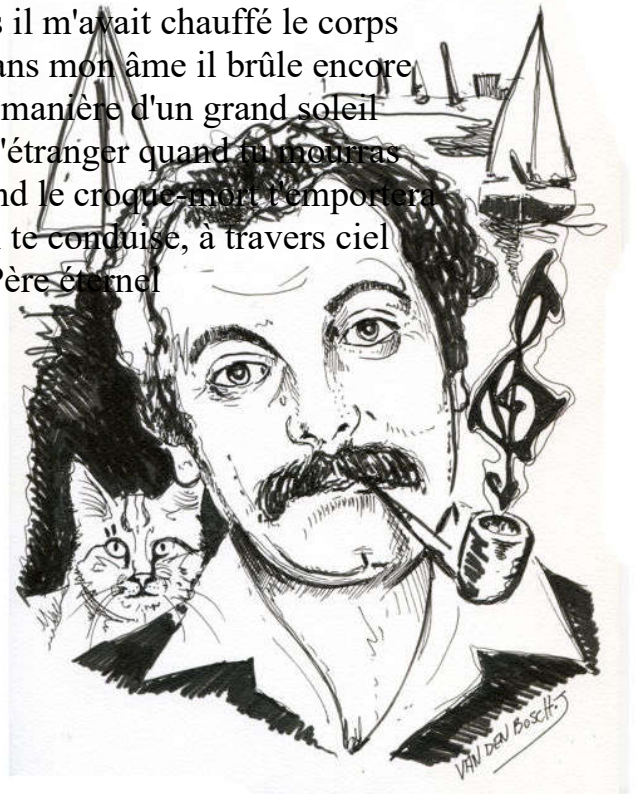 il m'avait chauffé le corps
mon âme il brûle encore
manière d'un grand soleil
l'étranger quand tu mourras
le croque-mort t'emportera
te conduise, à travers ciel
Père éternel
VAN DEN BOSCH.J